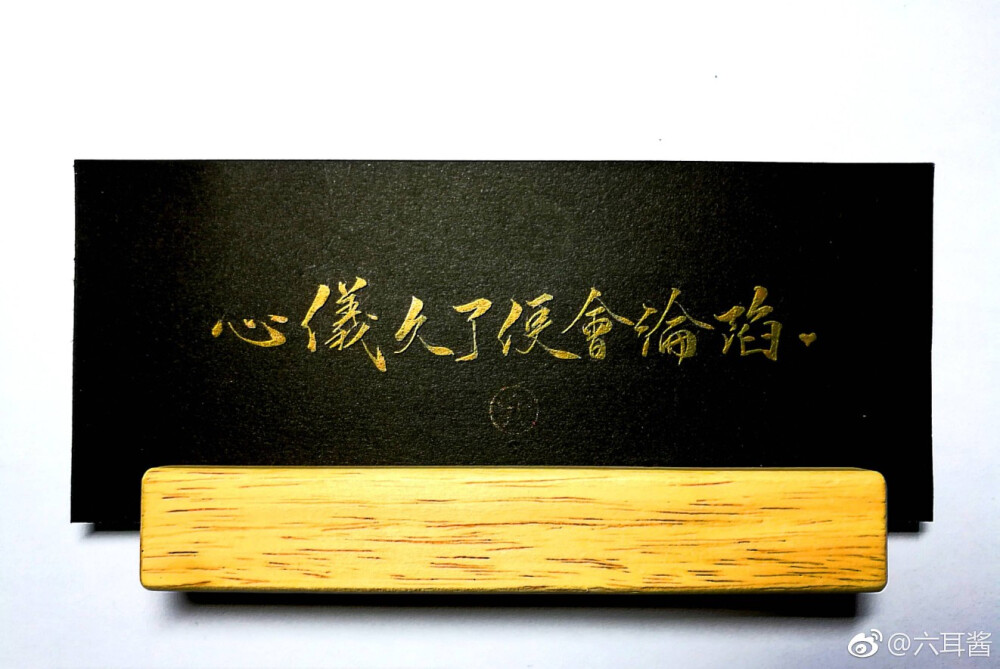 心儀久了便會淪陷.
@六耳酱